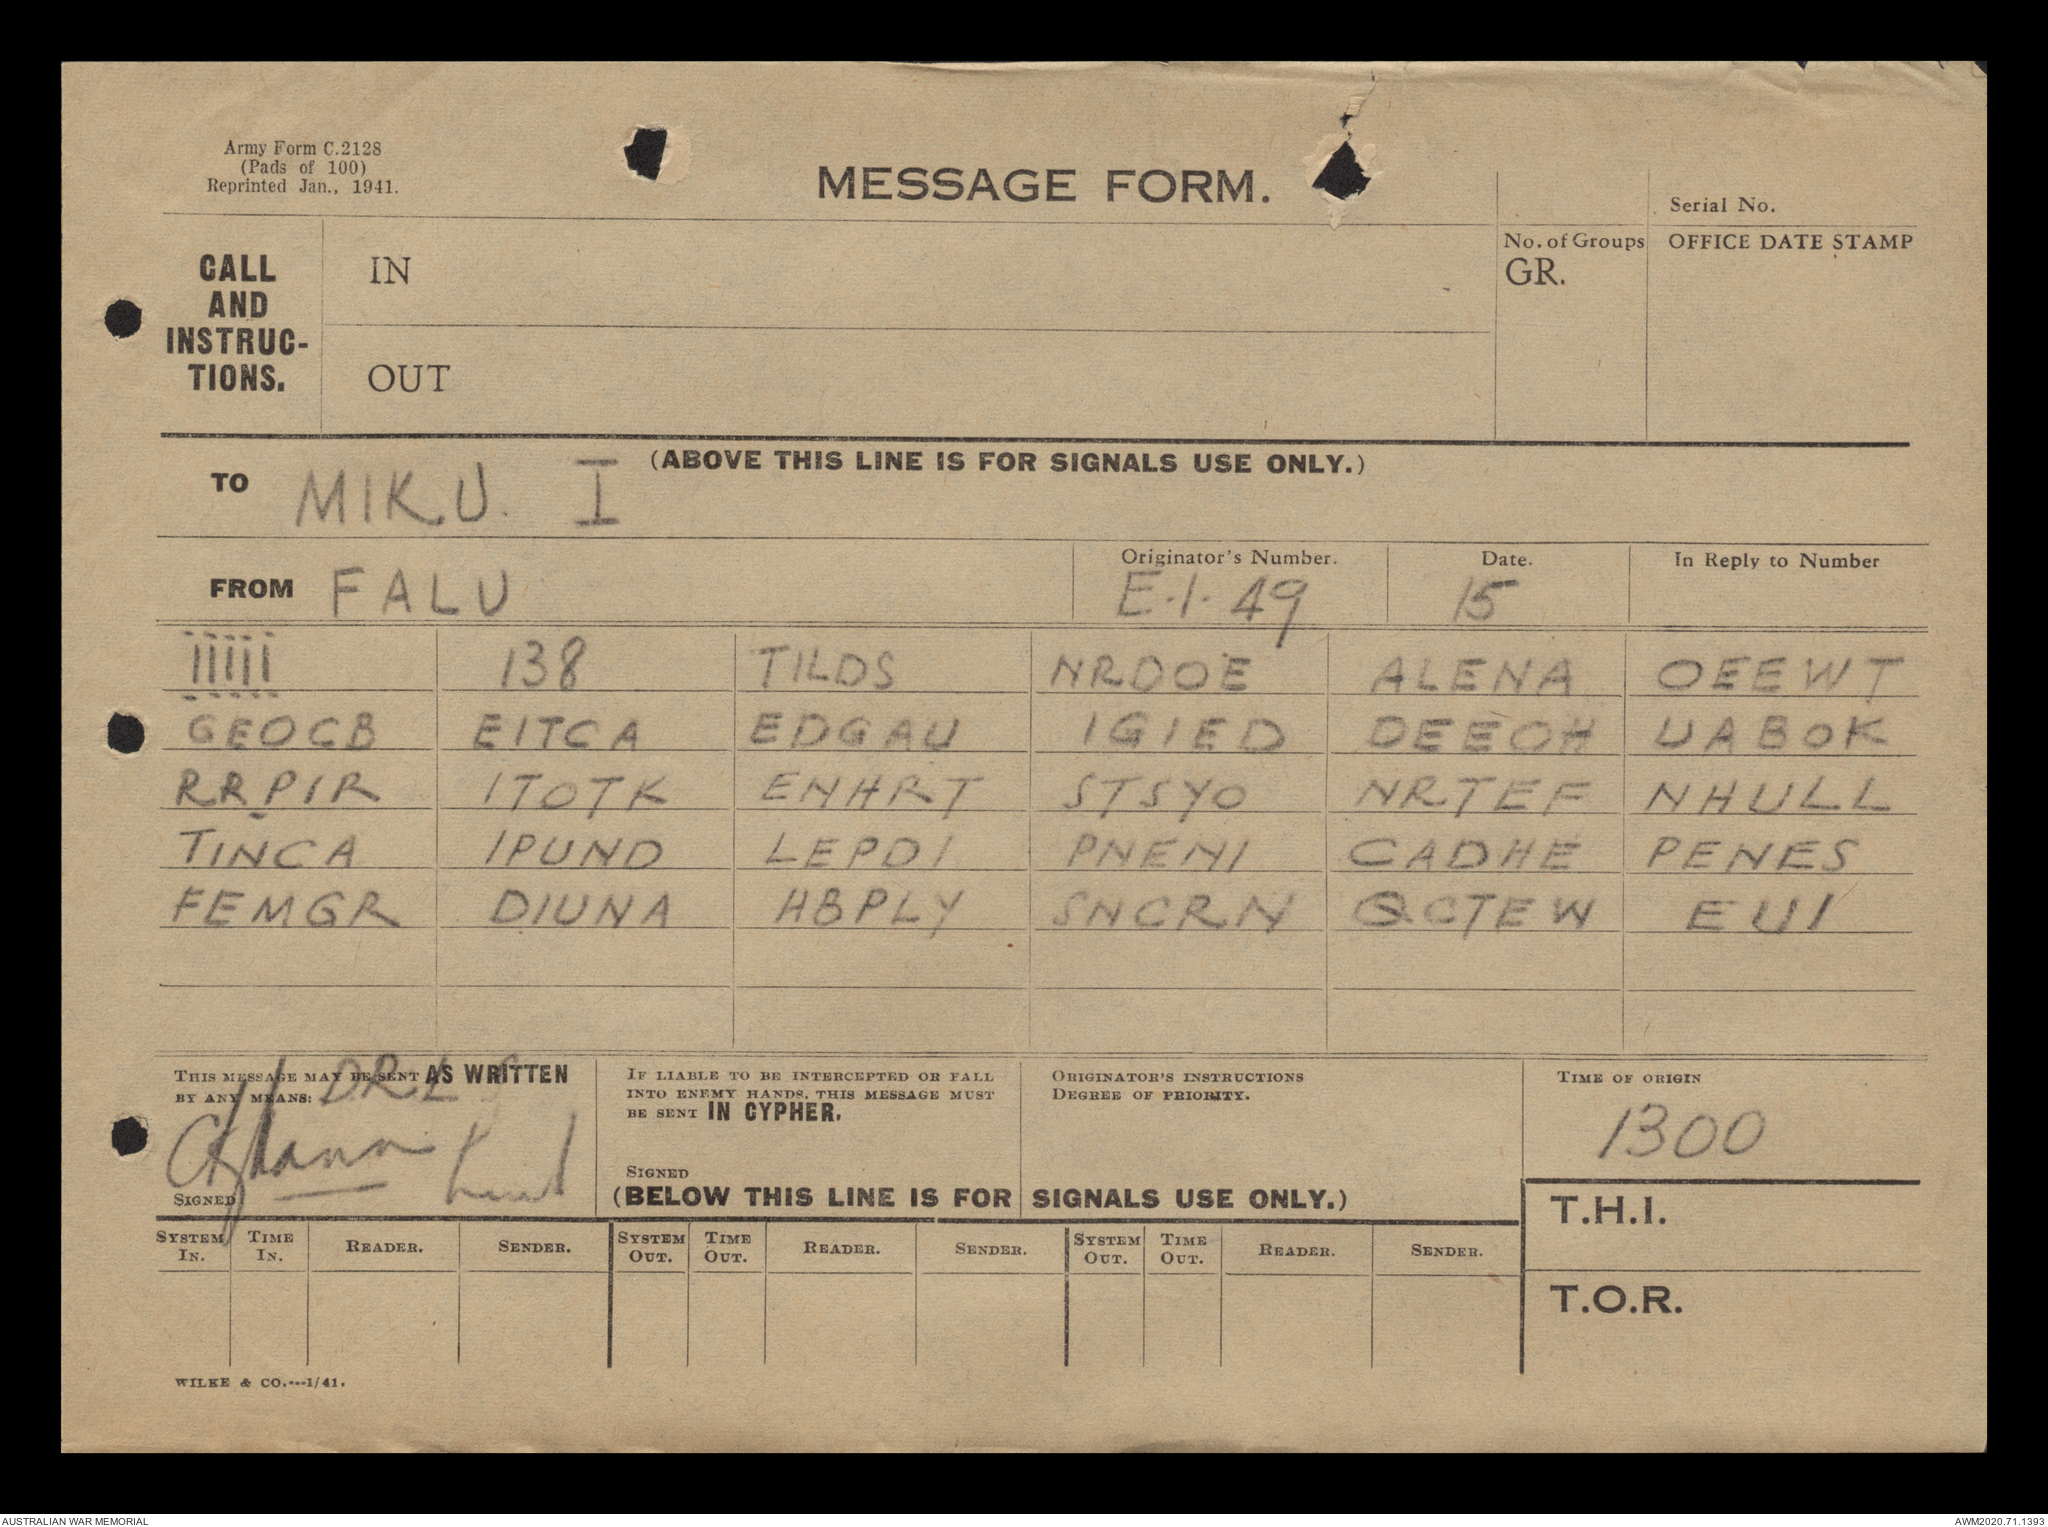 Army Form C.2128
(Pads of 100)
Reprinted Jan., 1941.
MESSAGE FORM.
Serial No.
CALL
AND
INSTRUC-
TIONS.
IN
OUT
No. of Groups
GR.
OFFICE DATE STAMP
(ABOVE THIS LINE IS FOR SIGNALS USE ONLY.)
TO MIKU. I
FROM FALU
Originator's Number.
E.1.49
Date.
15
In Reply to Number
IIIII 138 TILDS NRDOE ALENA OEEWT
GEOCB EITCA EDGAU IGIED DEEOH UABOK
RRPIR ITOTK ENHRT STSYO NRTEF NHULL
TINCA IPUND LEPDI PNENI CADHE PENES
FEMGR DIUNA HBPLY SNCRN QCTEW EUI
THIS MESSAGE MAY BE SENT AS WRITTEN
BY ANY MEANS: DRLS
SIGNED
IF LIABLE TO BE INTERCEPTED OR FALL
INTO ENEMY HANDS, THIS MESSAGE MUST
BE SENT IN CYPHER.
SIGNED
ORIGINATOR'S INSTRUCTIONS
DEGREE OF PRIORITY.
TIME OF ORIGIN
1300
(BELOW THIS LINE IS FOR SIGNALS USE ONLY.)
T.H.I.
T.O.R.
SYSTEM IN. TIME IN. READER. SENDER. SYSTEM OUT. TIME OUT. READER. SENDER. SYSTEM OUT. TIME OUT. READER. SENDER.
WILKE & CO.---1/41.
AUSTRALIAN WAR MEMORIAL
AWM2020.71.1393